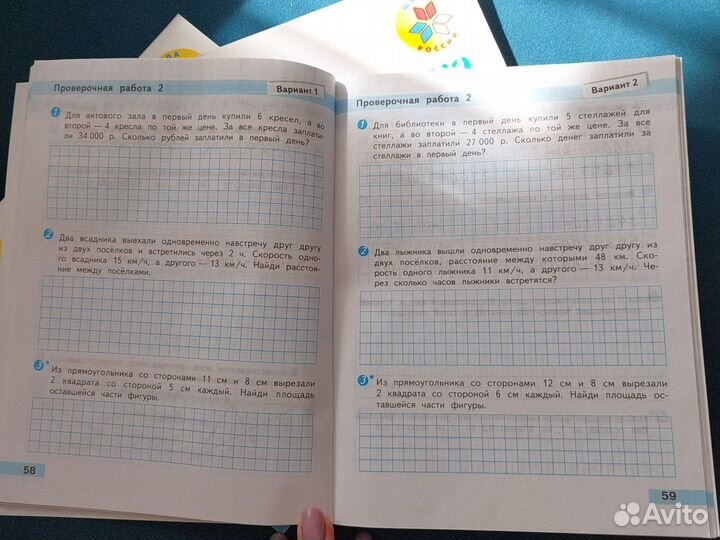 РОССИИ
Проверочная работа 2
Вариант 1
1 Для актового зала в первый день купили 6 кресел, а во
второй — 4 кресла по той же цене. За все кресла заплати-
ли 34 000 р. Сколько рублей заплатили в первый день?
2 Два всадника выехали одновременно навстречу друг другу
из двух посёлков и встретились через 2 ч. Скорость одно-
го всадника 15 км/ч, а другого — 13 км/ч. Найди расстоя-
ние между посёлками.
3* Из прямоугольника со сторонами 11 см и 8 см вырезали
2 квадрата со стороной 5 см каждый. Найди площадь
оставшейся части фигуры.
58
Проверочная работа 2
Вариант 2
1 Для библиотеки в первый день купили 5 стеллажей для
книг, а во второй — 4 стеллажа по той же цене. За все
стеллажи заплатили 27 000 р. Сколько денег заплатили за
стеллажи в первый день?
2 Два лыжника вышли одновременно навстречу друг другу из
двух посёлков, расстояние между которыми 48 км. Ско-
рость одного лыжника 11 км/ч, а другого — 13 км/ч. Че-
рез сколько часов лыжники встретятся?
3* Из прямоугольника со сторонами 12 см и 8 см вырезали
2 квадрата со стороной 6 см каждый. Найди площадь ос-
тавшейся части фигуры.
59
Avito